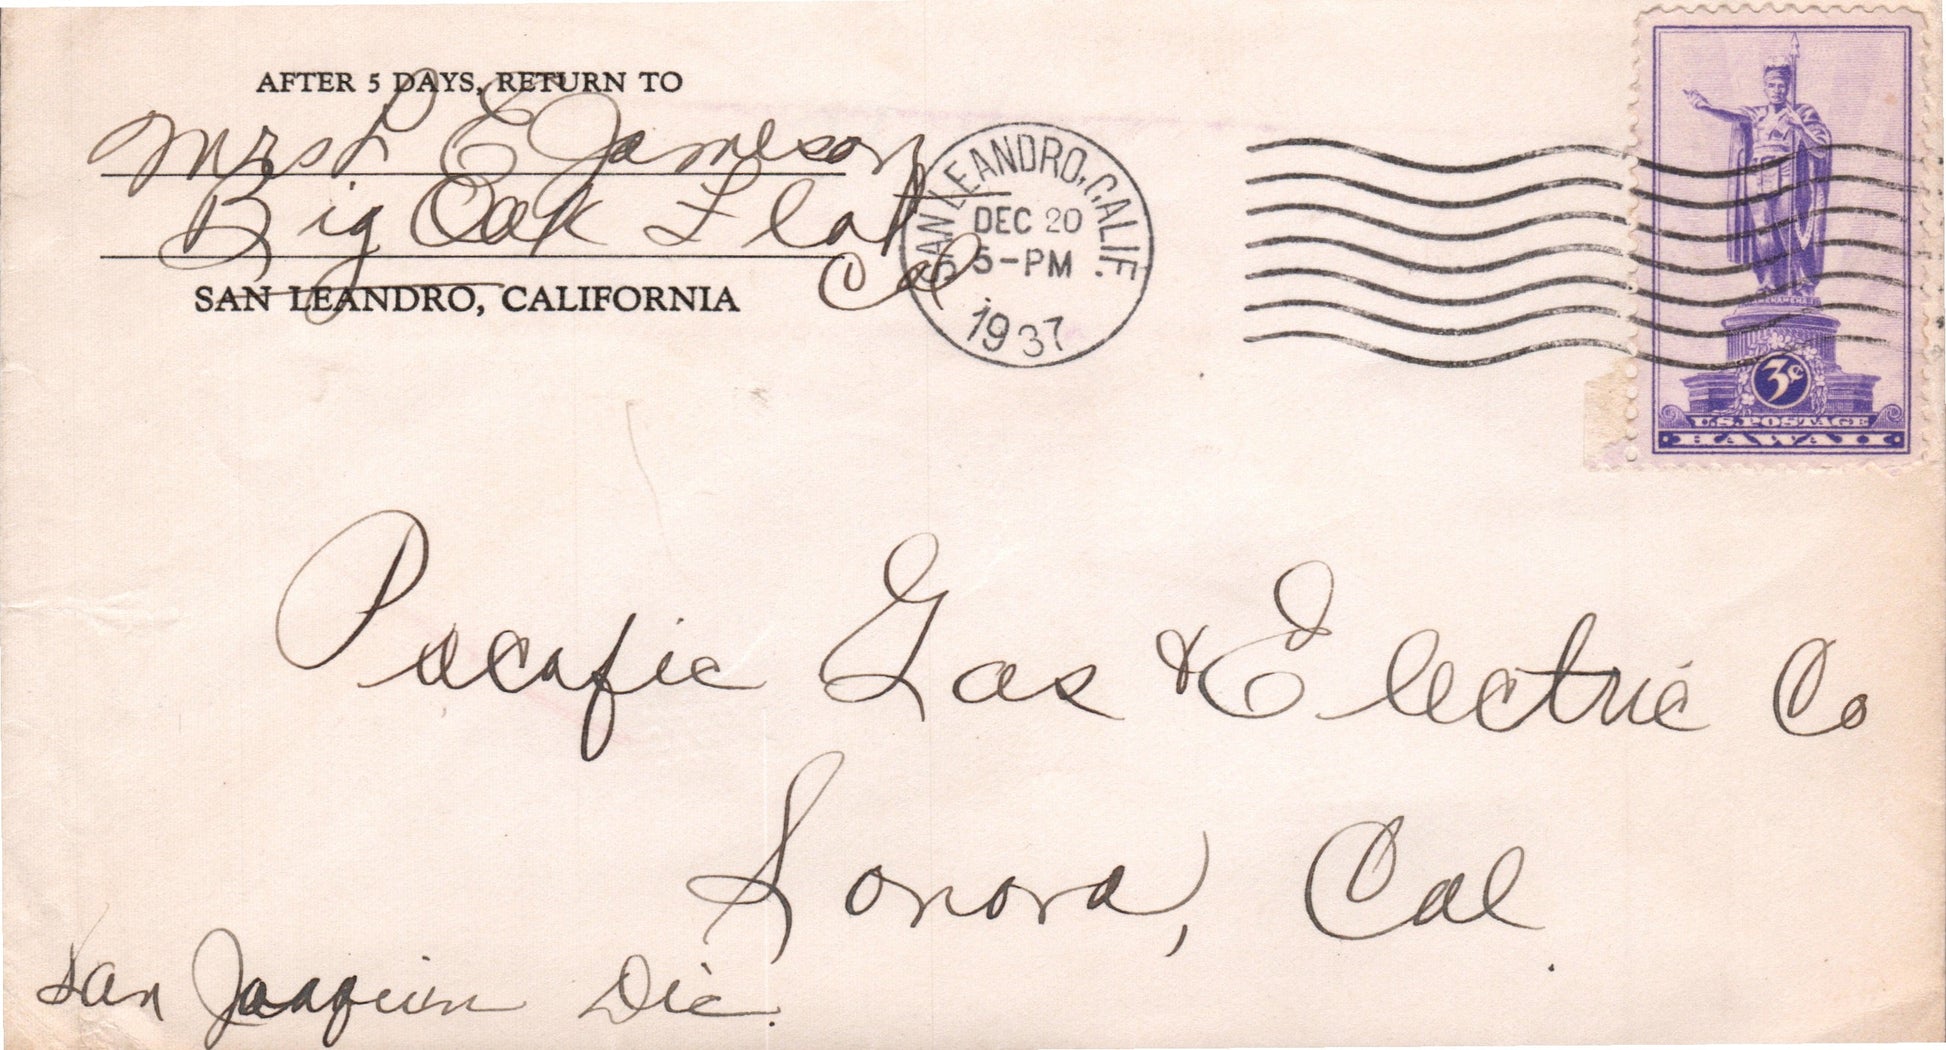 AFTER 5 DAYS, RETURN TO
Mrs L E Jameson
Big Oak Flat
Cal
SAN LEANDRO, CALIFORNIA
SAN LEANDRO, CALIF.
DEC 20
5-PM
1937
3¢
U.S. POSTAGE
HAWAII
Pacific Gas & Electric Co
Sonora, Cal.
San Joaquin Div.